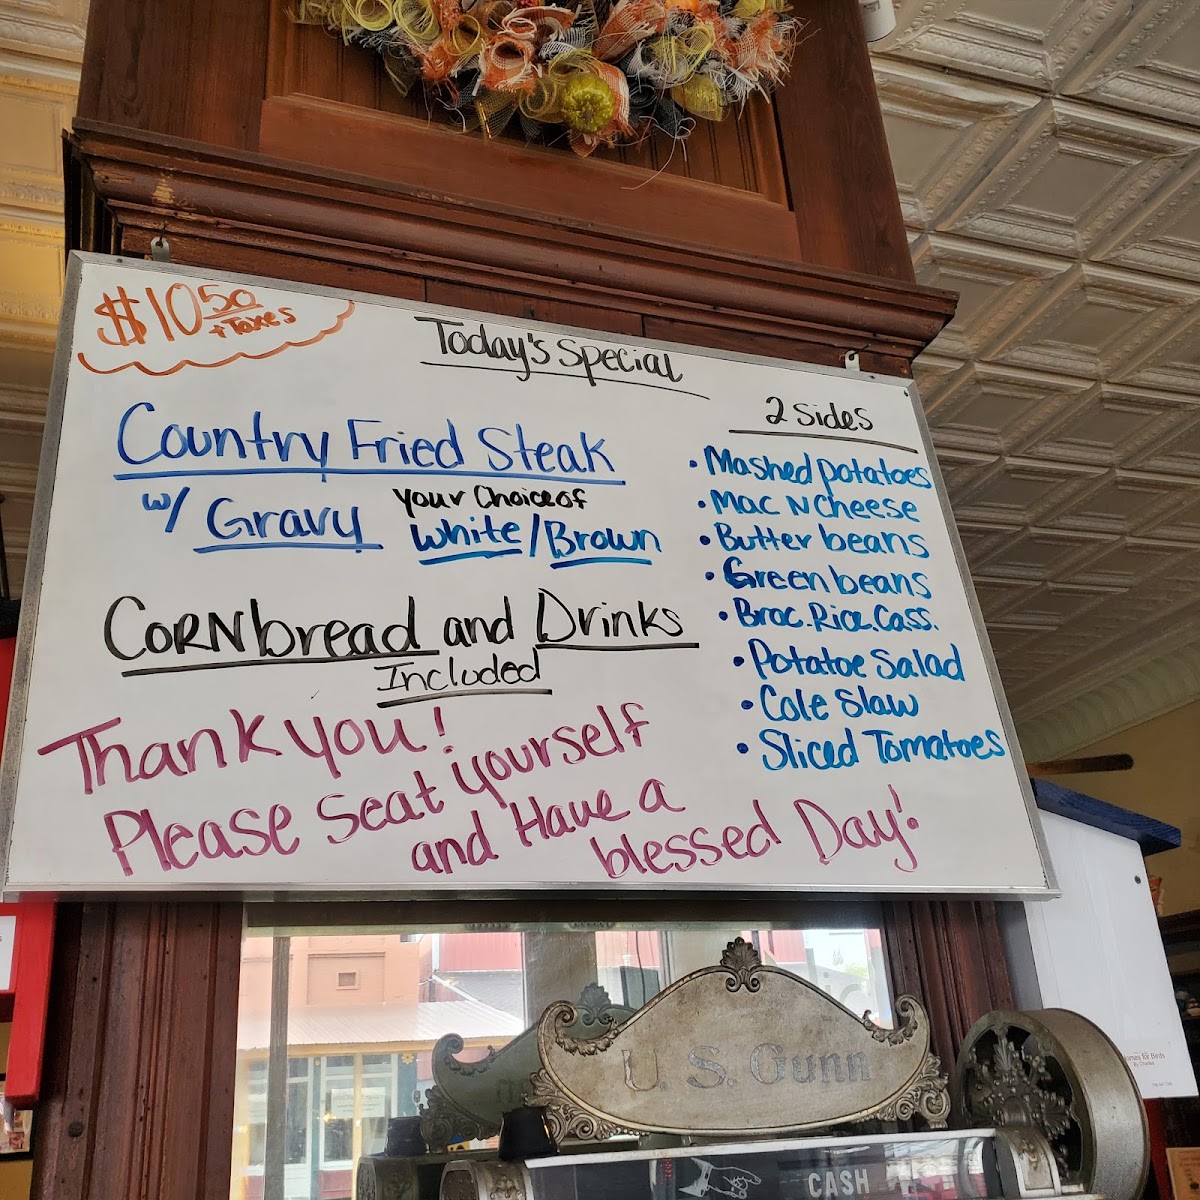 $10 50
+ Taxes
Today's Special
Country Fried Steak
w/ Gravy
your Choice of
White/Brown
Cornbread and Drinks
Included
Thank you!
Please Seat yourself
and Have a
blessed Day!
2 Sides
• Mashed potatoes
• Mac N Cheese
• Butter beans
• Green beans
• Broc. Rice. Cass.
• Potatoe Salad
• Cole Slaw
• Sliced Tomatoes
U. S. Gunn
CASH
for Birds